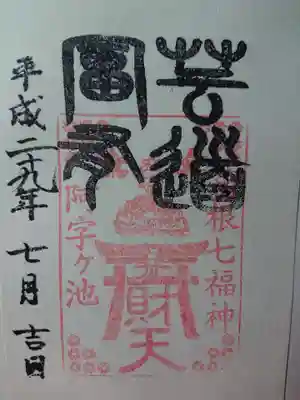 箱根七福神
弁財天
阿字ヶ池
平成二十九年 七月 吉日